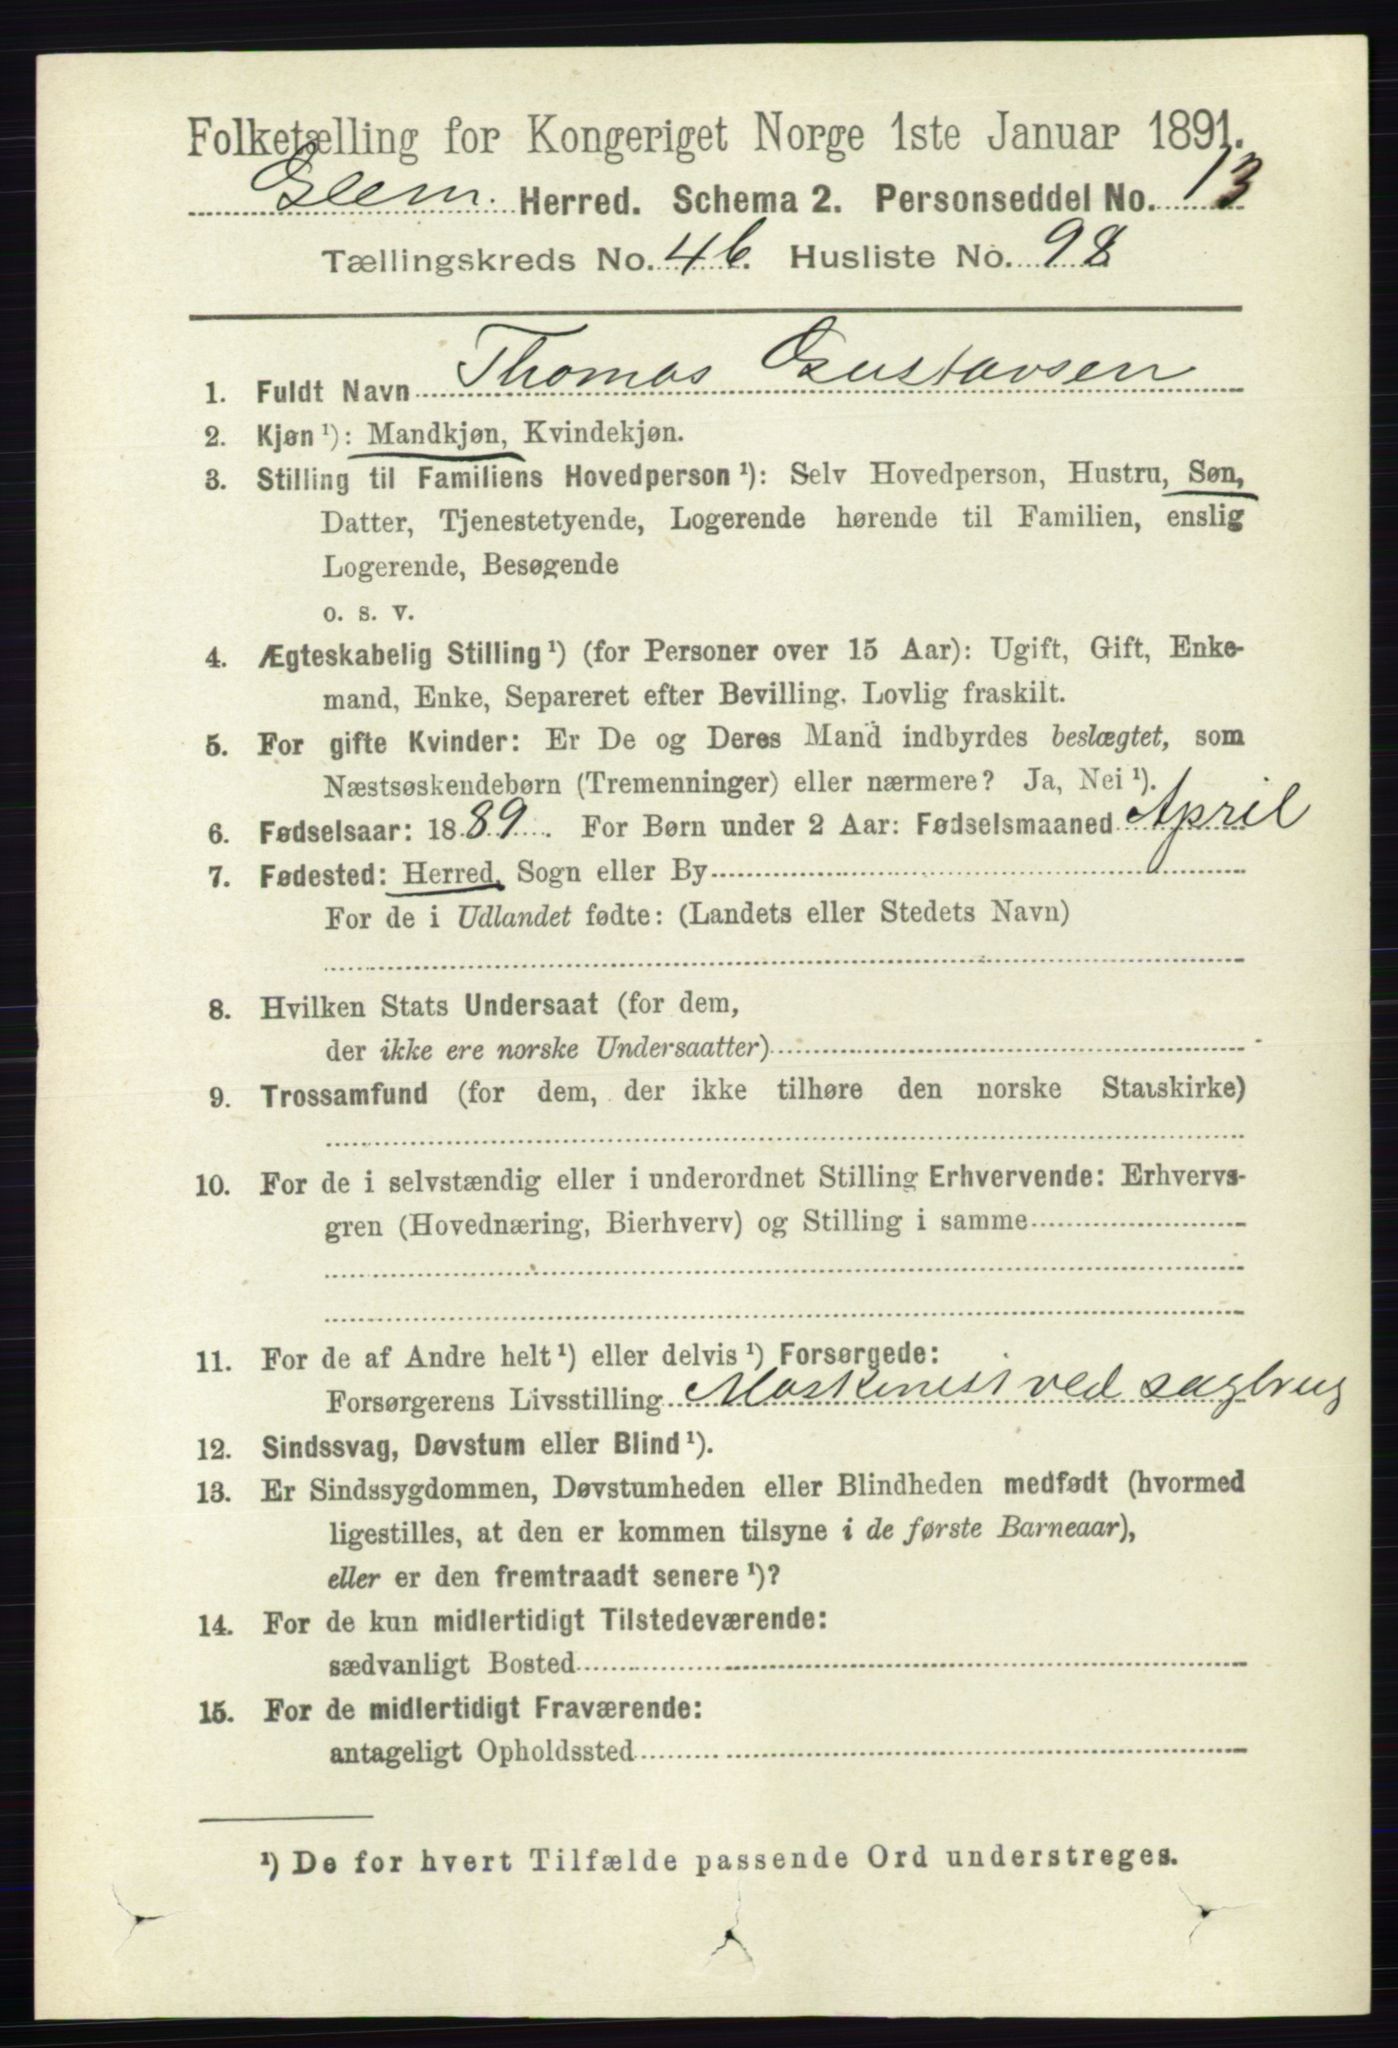 Folketælling for Kongeriget Norge 1ste Januar 1891.
Glem. Herred. Schema 2. Personseddel No. 13
Tællingskreds No. 46. Husliste No. 98
1. Fuldt Navn Thomas Gustavsen
2. Kjøn ¹): Mandkjøn, Kvindekjøn.
3. Stilling til Familiens Hovedperson ¹): Selv Hovedperson, Hustru, Søn,
Datter, Tjenestetyende, Logerende hørende til Familien, enslig
Logerende, Besøgende
o. s. v.
4. Ægteskabelig Stilling ¹) (for Personer over 15 Aar): Ugift, Gift, Enke-
mand, Enke, Separeret efter Bevilling. Lovlig fraskilt.
5. For gifte Kvinder: Er De og Deres Mand indbyrdes beslægtet, som
Næstsøskendebørn (Tremenninger) eller nærmere? Ja, Nei ¹).
6. Fødselsaar: 1889. For Børn under 2 Aar: Fødselsmaaned April
7. Fødested: Herred, Sogn eller By
For de i Udlandet fødte: (Landets eller Stedets Navn)
8. Hvilken Stats Undersaat (for dem,
der ikke ere norske Undersaatter)
9. Trossamfund (for dem, der ikke tilhøre den norske Statskirke)
10. For de i selvstændig eller i underordnet Stilling Erhvervende: Erhvervs-
gren (Hovednæring, Bierhverv) og Stilling i samme
11. For de af Andre helt ¹) eller delvis ¹) Forsørgede:
Forsørgerens Livsstilling Maskinist ved sagbrug
12. Sindssvag, Døvstum eller Blind ¹).
13. Er Sindssygdommen, Døvstumheden eller Blindheden medfødt (hvormed
ligestilles, at den er kommen tilsyne i de første Barneaar),
eller er den fremtraadt senere ¹)?
14. For de kun midlertidigt Tilstedeværende:
sædvanligt Bosted
15. For de midlertidigt Fraværende:
antageligt Opholdssted
¹) De for hvert Tilfælde passende Ord understreges.